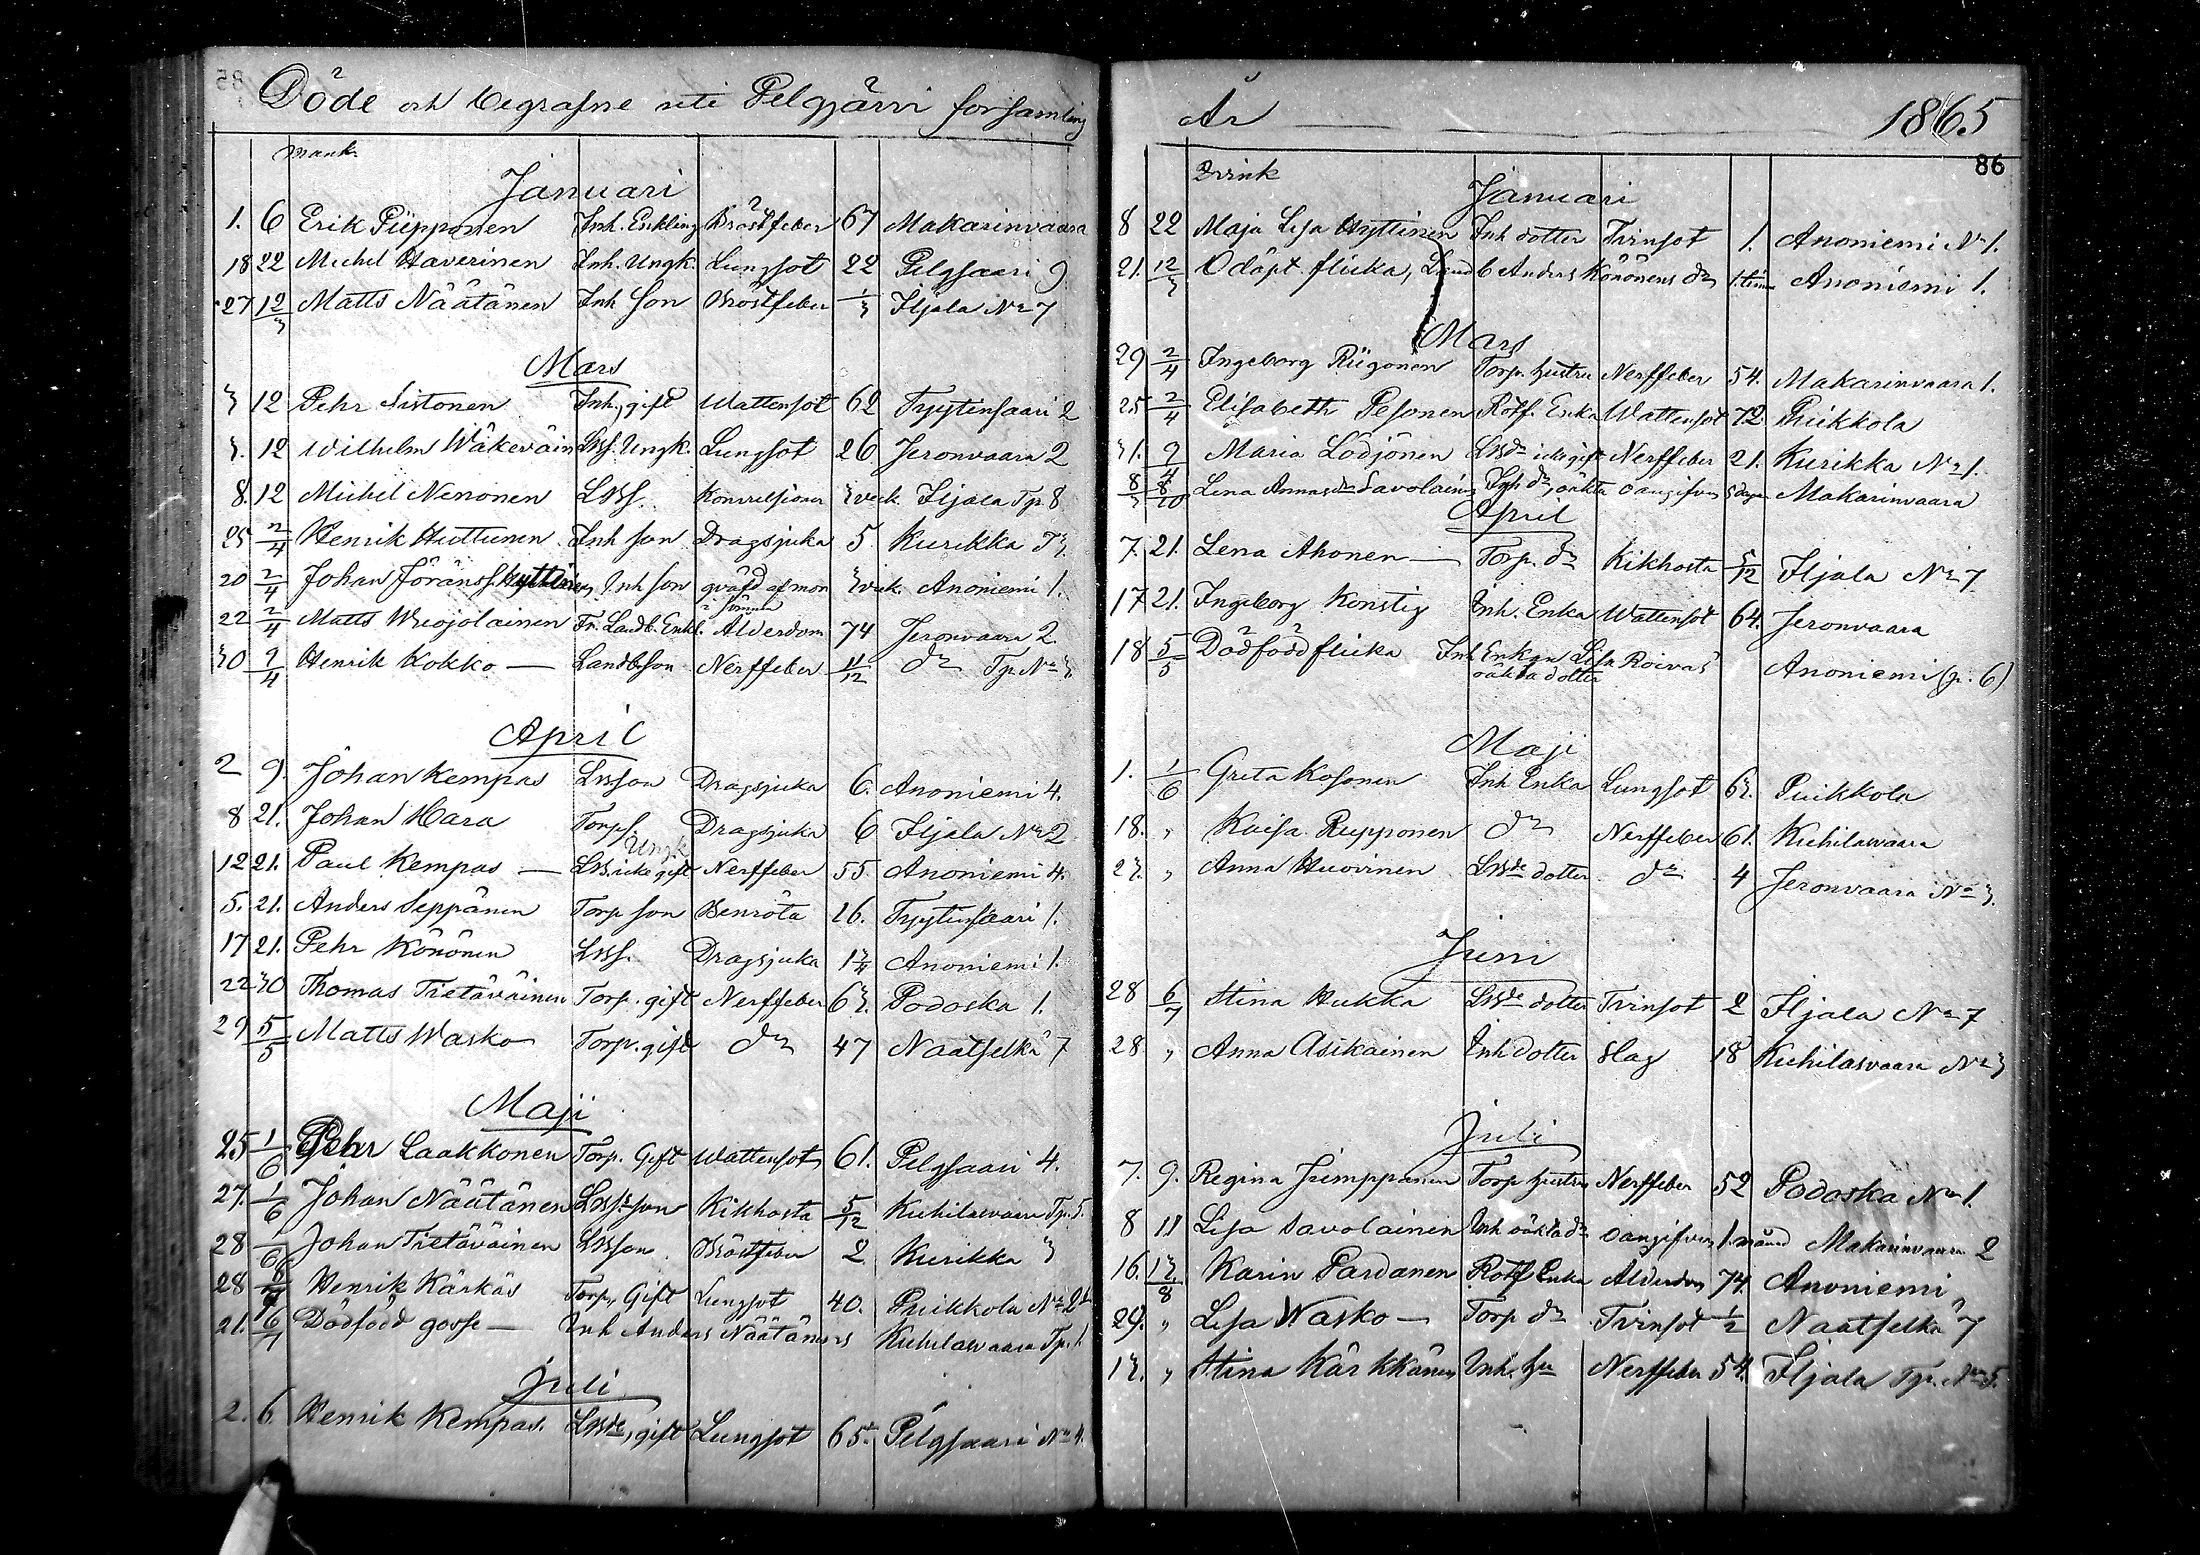 Döde och begrafne uti Pelgjärvi församling
Mank.
Januari
1. 6 Erik Piipponen Inh. Enkling Bröstfeber 67 Makarinvaara
18 22 Michel Haverinen Inh. Ungk. Lungsot 22 Pelgsaari 9
27 12/3 Matts Näätänen Inh son Bröstfeber 1/3 Iljala No 7
Mars
3 12 Pehr Sistonen Inh, gift Wattensot 62 Tyytinsaari 2
3. 12 Wilhelm Wäkeväin LBs. Ungk. Lungsot 26 Jeronvaara 2
8. 12 Michel Nenonen LBs. Konvulsioner 3 veck. Iljala Tp. 8
25 2/4 Henrik Huttunen Inh son Dragsjuka 5 Kurikka T 3.
20 2/4 Johan Hyttinen Inh son qväfd af mon 3 veck. Anoniemi 1.
i sömnen
22 2/4 Matts Fr. Landb. Enkl. Alderdom 74 Jeronvaara 2
30 9/4 Henrik Kokko — Landbson Nerffeber 11/12 do Tp. No 3
April
2 9. Johan Kempas LBson Dragsjuka 6. Anoniemi 4.
8 21. Johan Hara Torps. Dragsjuka 6 Iljala No 2
Ungk
12 21. Paul Kempas — LB. icke gift Nerffeber 55. Anoniemi 4.
5. 21. Anders Seppänen Torp son Benröta 16. Tyytinsaari 1.
17 21. Pehr Könönen LBs. Dragsjuka 1 3/4 Anoniemi 1.
22 30 Thomas Tietäväinen Torp. gift Nerffeber 63. Podoska 1.
29 5/5 Matts Wasko Torp. gift do 47 Naatselkä 7
Maji
25 1/6 Pehr Laakkonen Torp. Gift Wattensot 61. Pelgsaari 4.
27. 1/6 Johan Näätänen LBs son Kikhosta 5/12 Kuhilasvaara Tp. 5.
28 1/6 Johan Tietäväinen LBson Bröstfeber 2 Kurikka 3
28 Henrik Kärkäs Torp, Gift Lungsot 40. Puikkola No 2
21. 6/7 Dödfödd gosse — Inh Anders Näätänens Kuhilasvaara Tp. 1.
Juli
2. 6. Henrik Kempas. LBde, gift Lungsot 65. Pelgsaari No 4.
År 1865
86
Qvink
Januari
8 22 Maja Lisa Hyttinen Inh dotter Tvinsot 1. Anoniemi No 1.
21. 12/3 Odöpt flicka, Landb Anders Könönens dr 1. timme Anoniemi 1.
Mars
29 2/4 Ingeborg Riigonen Torp. hustru Nerffeber 54. Makarinvaara 1.
25 2/4 Elisabeth Pesonen Rotf. Enka Wattensot 72. Puikkola
31. 9/4 Maria Lödjönen LBdr icke gift Nerffeber 21. Kurikka No 1.
8/3 8/10 Lena Annasdr Savolainen Inh dr, oäkta oangifven 5 dagar Makarinvaara
April
7. 21. Lena Ahonen — Torp. dr Kikhosta 5/12 Iljala No 7
17 21. Ingeborg Konstig Inh. Enka Wattensot 64. Jeronvaara
18 5/5 Dödfödd flicka Inh Enkan Lisa Roivas Anoniemi (p. 6)
oäkta dotter
Maji
1. 1/6 Greta Kosonen Inh Enka Lungsot 63. Puikkola
18. " Kaisa Rupponen do Nerffeber 61. Kuhilasvaara
23. " Anna Huovinen LBde dotter do 4 Jeronvaara No 3.
Juni
28 6/7 Stina Hukka LBde dotter Tvinsot 2 Iljala No 7
28 " Anna Asikainen Inh dotter Slag 18 Kuhilasvaara No 3
Juli
7. 9. Regina Jumpponen Torp hustru Nerffeber 52 Podoska No 1.
8 11 Lisa Savolainen Inh oäkta dr oangifven 1. månad Makarinvaara 2
16. 13/8 Karin Pardanen Rotf Enka Alderdom 74. Anoniemi
29. " Lisa Wasko — Torp dr Tvinsot 1/2 Naatselkä 7
13. " Stina Kärkkänen Inh. hu Nerffeber 54. Iljala Tp. No 5.